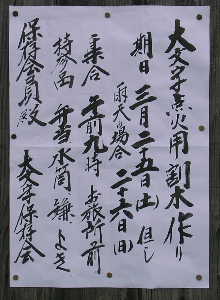 大文字点火用割木作り
期日 三月二十五日(土) 但し
雨天の場合 二十六日(日)
集合 午前九時 お旅所前
持参品 弁当 水筒 鎌 よき
保存会員殿 大文字保存会